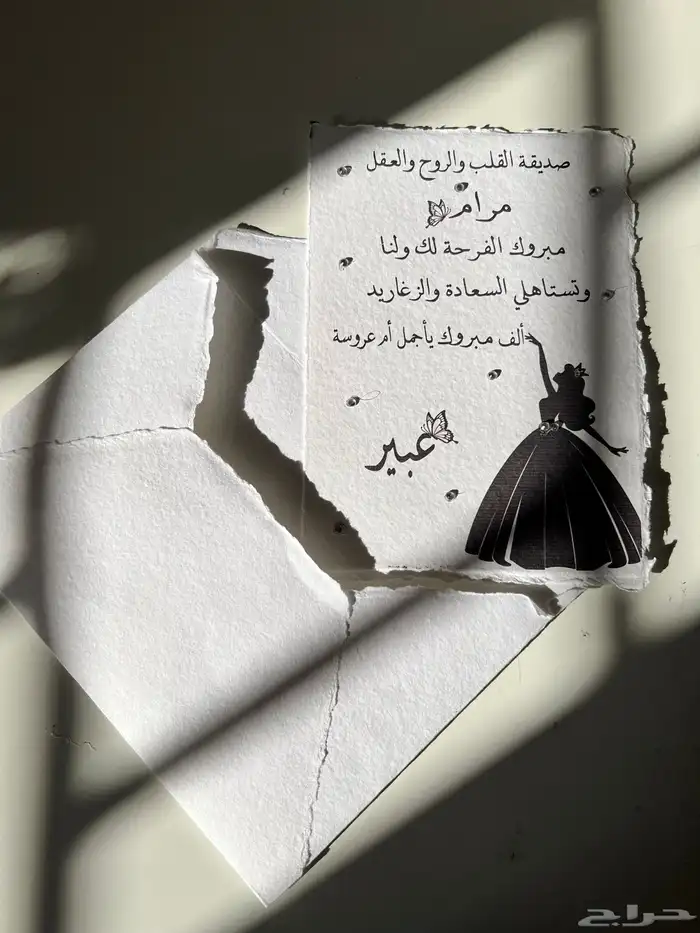 صديقة القلب والروح والعقل
مرام
مبروك الفرحة لك ولنا
وتستاهلي السعادة والزغاريد
ألف مبروك يأجمل أم عروسة
عبير
حراج